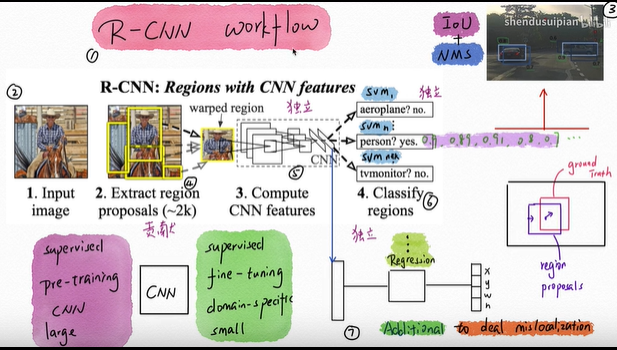 R-CNN workflow
①
IoU
+
NMS
③
shendusuipian
②
R-CNN: Regions with CNN features
warped region
独立
SVM1
独立
aeroplane? no.
SVMn
person? yes.
0.89, 0.91, 0.8, 0.
...
SVM nth
tvmonitor? no.
CNN
④
⑤
⑥
1. Input
image
2. Extract region
proposals (~2k)
3. Compute
CNN features
4. Classify
regions
ground
truth
region
proposals
贡献
独立
supervised
pre-training
CNN
large
CNN
supervised
fine-tuning
domain-specific
small
Regression
x
y
w
h
⑦
Additional to deal mislocalization